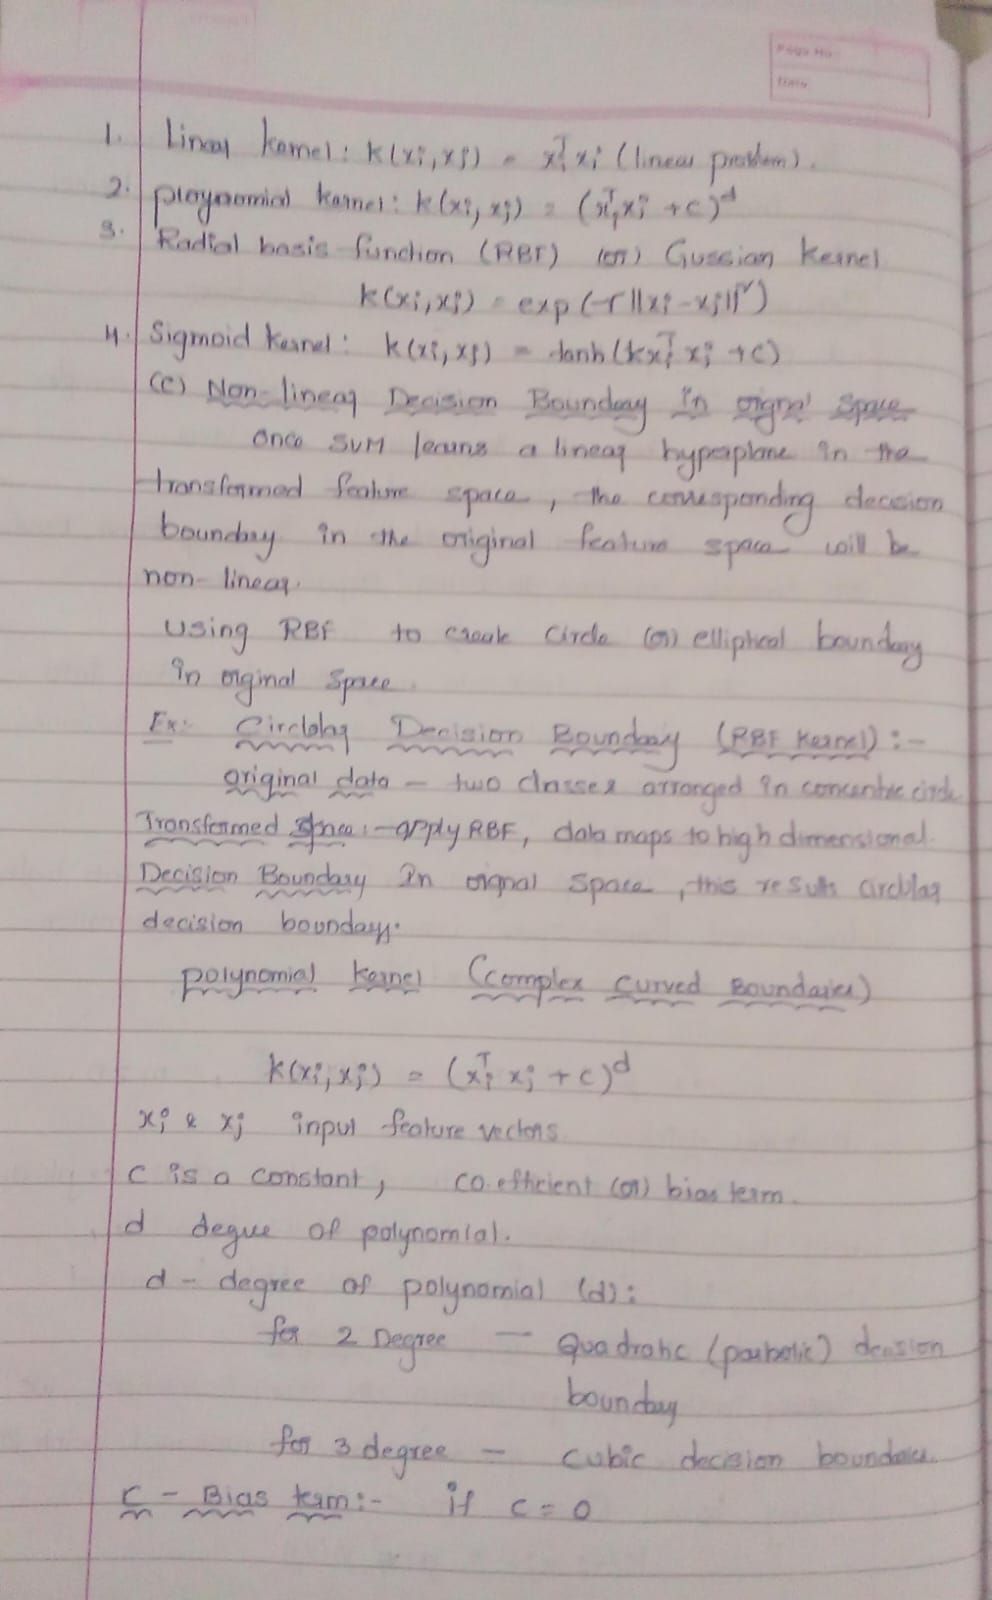 Page No:
Date
1. Linear kernel: k(xi, xj) = xiᵀ xj (linear problem).
2. ploynomial kernel: k(xi, xj) = (xiᵀ xj + c)ᵈ
3. Radial basis function (RBF) (or) Gussian Kernel
k(xi, xj) = exp(-r||xi - xj||²)
4. Sigmoid kernel: k(xi, xj) = tanh(kxiᵀ xj + c)
(c) Non-linear Decision Boundary in orignal space
once SVM learns a linear hyperplane in the
transformed feature space, the corresponding decision
boundary in the original feature space will be
non-linear.
Using RBF to create circle (or) elliptical boundary
in orginal space.
Ex:- Circular Decision Boundary (RBF Kernel) :-
original data - two classes arranged in concentric circle
Transformed space :- apply RBF, data maps to high dimensional.
Decision Boundary In orignal space, this results circular
decision boundary.
polynomial Kernel (complex curved Boundaries)
k(xi, xj) = (xiᵀ xj + c)ᵈ
xi & xj input feature vectors
c is a constant, co.efficient (or) bias term.
d degree of polynomial.
d - degree of polynomial (d):
for 2 Degree — Quadratic (parbolic) decision
boundary
for 3 degree - cubic decision boundaries.
c - Bias term:- if c = 0